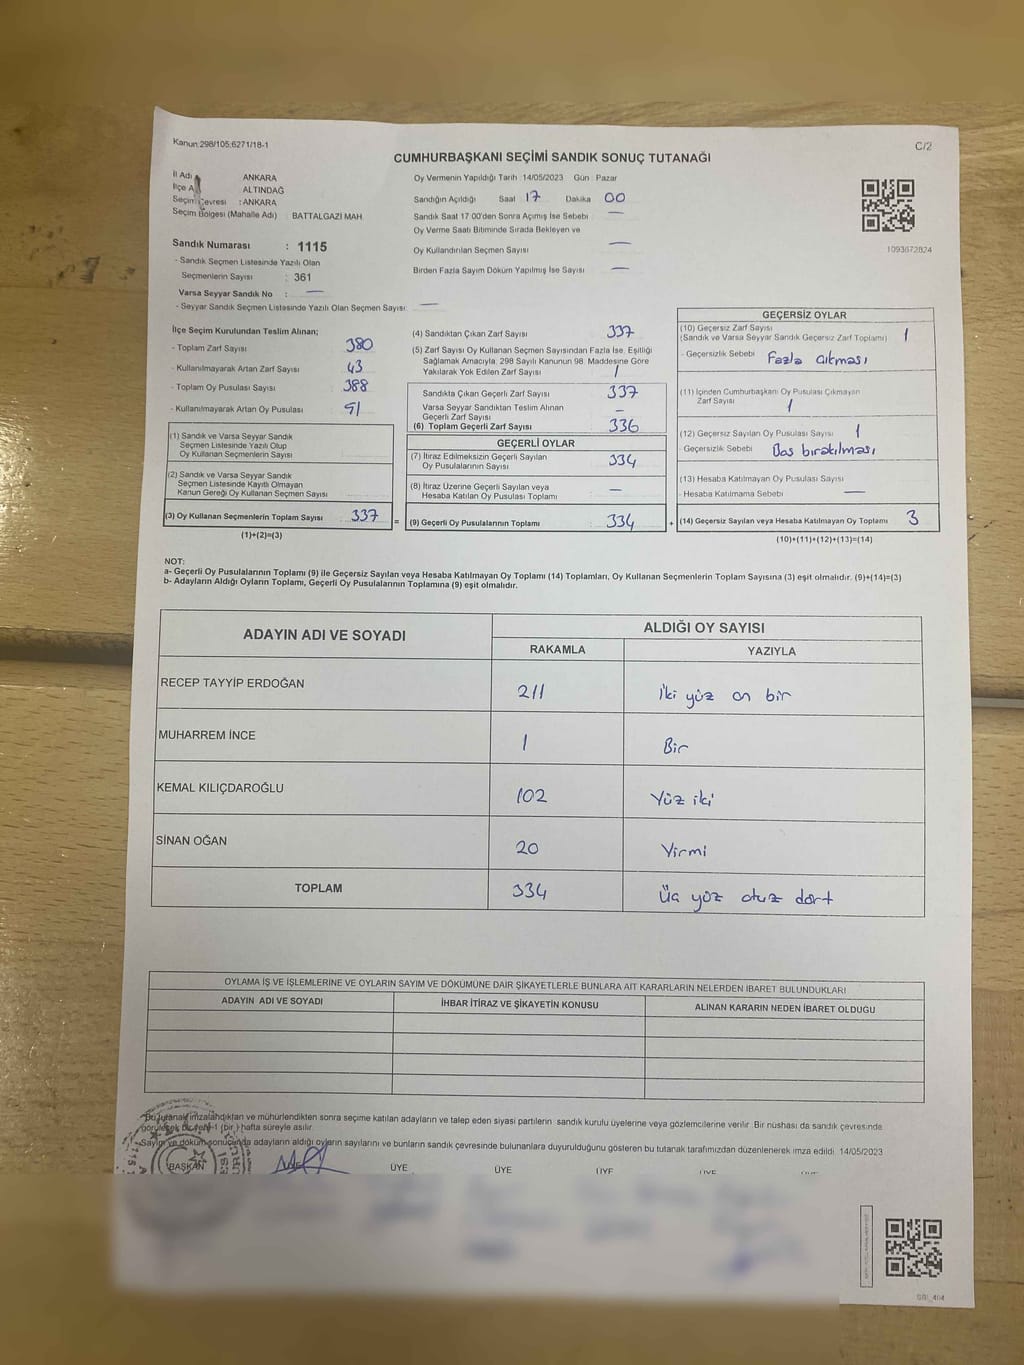 Kanun:298/105;6271/18-1
C/2
CUMHURBAŞKANI SEÇİMİ SANDIK SONUÇ TUTANAĞI
İl Adı ANKARA
İlçe A ALTINDAĞ
Seçim Çevresi : ANKARA
Seçim Bölgesi (Mahalle Adı) : BATTALGAZİ MAH.
Sandık Numarası : 1115
- Sandık Seçmen Listesinde Yazılı Olan
Seçmenlerin Sayısı : 361
Varsa Seyyar Sandık No : —
- Seyyar Sandık Seçmen Listesinde Yazılı Olan Seçmen Sayısı: —
Oy Vermenin Yapıldığı Tarih :14/05/2023 Gün : Pazar
Sandığın Açıldığı Saat 17 Dakika 00
Sandık Saat 17:00'den Sonra Açılmış İse Sebebi —
Oy Verme Saati Bitiminde Sırada Bekleyen ve
Oy Kullandırılan Seçmen Sayısı —
Birden Fazla Sayım Döküm Yapılmış İse Sayısı —
1093672824
İlçe Seçim Kurulundan Teslim Alınan;
- Toplam Zarf Sayısı 380
- Kullanılmayarak Artan Zarf Sayısı 43
- Toplam Oy Pusulası Sayısı 388
- Kullanılmayarak Artan Oy Pusulası 51
(1) Sandık ve Varsa Seyyar Sandık
Seçmen Listesinde Yazılı Olup
Oy Kullanan Seçmenlerin Sayısı
(2) Sandık ve Varsa Seyyar Sandık
Seçmen Listesinde Kayıtlı Olmayan
Kanun Gereği Oy Kullanan Seçmen Sayısı
(3) Oy Kullanan Seçmenlerin Toplam Sayısı 337
(1)+(2)=(3)
=
(4) Sandıktan Çıkan Zarf Sayısı 337
(5) Zarf Sayısı Oy Kullanan Seçmen Sayısından Fazla İse, Eşitliği
Sağlamak Amacıyla, 298 Sayılı Kanunun 98. Maddesine Göre
Yakılarak Yok Edilen Zarf Sayısı 1
Sandıkta Çıkan Geçerli Zarf Sayısı 337
Varsa Seyyar Sandıktan Teslim Alınan
Geçerli Zarf Sayısı —
(6) Toplam Geçerli Zarf Sayısı 336
GEÇERLİ OYLAR
(7) İtiraz Edilmeksizin Geçerli Sayılan
Oy Pusulalarının Sayısı 334
(8) İtiraz Üzerine Geçerli Sayılan veya
Hesaba Katılan Oy Pusulası Toplamı —
(9) Geçerli Oy Pusulalarının Toplamı 334
+
GEÇERSİZ OYLAR
(10) Geçersiz Zarf Sayısı
(Sandık ve Varsa Seyyar Sandık Geçersiz Zarf Toplamı) 1
- Geçersizlik Sebebi Fazla çıkması
(11) İçinden Cumhurbaşkanı Oy Pusulası Çıkmayan
Zarf Sayısı 1
(12) Geçersiz Sayılan Oy Pusulası Sayısı 1
- Geçersizlik Sebebi Bos bırakılması
(13) Hesaba Katılmayan Oy Pusulası Sayısı
- Hesaba Katılmama Sebebi —
(14) Geçersiz Sayılan veya Hesaba Katılmayan Oy Toplamı 3
(10)+(11)+(12)+(13)=(14)
NOT:
a- Geçerli Oy Pusulalarının Toplamı (9) ile Geçersiz Sayılan veya Hesaba Katılmayan Oy Toplamı (14) Toplamları, Oy Kullanan Seçmenlerin Toplam Sayısına (3) eşit olmalıdır. (9)+(14)=(3)
b- Adayların Aldığı Oyların Toplamı, Geçerli Oy Pusulalarının Toplamına (9) eşit olmalıdır.
ADAYIN ADI VE SOYADI
ALDIĞI OY SAYISI
RAKAMLA YAZIYLA
RECEP TAYYİP ERDOĞAN 211 İki yüz on bir
MUHARREM İNCE 1 Bir
KEMAL KILIÇDAROĞLU 102 Yüz iki
SİNAN OĞAN 20 Yirmi
TOPLAM 334 Üç yüz otuz dört
OYLAMA İŞ VE İŞLEMLERİNE VE OYLARIN SAYIM VE DÖKÜMÜNE DAİR ŞİKAYETLERLE BUNLARA AİT KARARLARIN NELERDEN İBARET BULUNDUKLARI
ADAYIN ADI VE SOYADI İHBAR İTİRAZ VE ŞİKAYETİN KONUSU ALINAN KARARIN NEDEN İBARET OLDUĞU
Bu tutanak imzalandıktan ve mühürlendikten sonra seçime katılan adayların ve talep eden siyasi partilerin sandık kurulu üyelerine veya gözlemcilerine verilir. Bir nüshası da sandık çevresinde
görülecek bir yere 1 (bir ) hafta süreyle asılır.
Sayım ve döküm sonucunda adayların aldığı oyların sayılarını ve bunların sandık çevresinde bulunanlara duyurulduğunu gösteren bu tutanak tarafımızdan düzenlenerek imza edildi. 14/05/2023
BAŞKAN ÜYE ÜYE ÜYE ÜYE